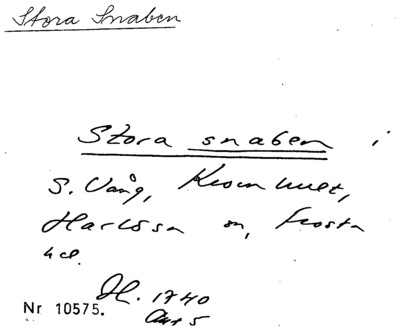 Stora Snaben
Stora snaben i
S. Vång,
Harlösa sn, Frosta
hd.
H. 1740
Akt 5
Nr 10575.